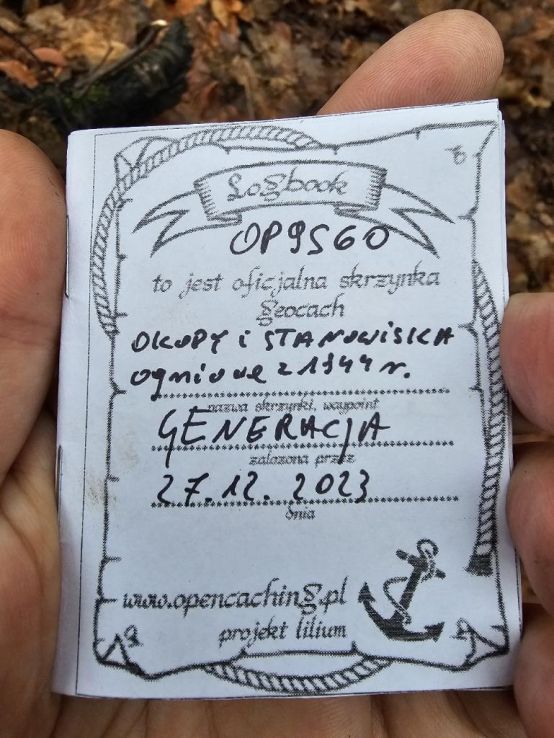 Logbook
OP9S60
to jest oficjalna skrzynka
geocach
OKOPY i STANOWISKA
ogniowe z 1944 r.
nazwa skrzynki, waypoint
GENERACJA
założona przez
27.12.2023
dnia
www.opencaching.pl
projekt lilium